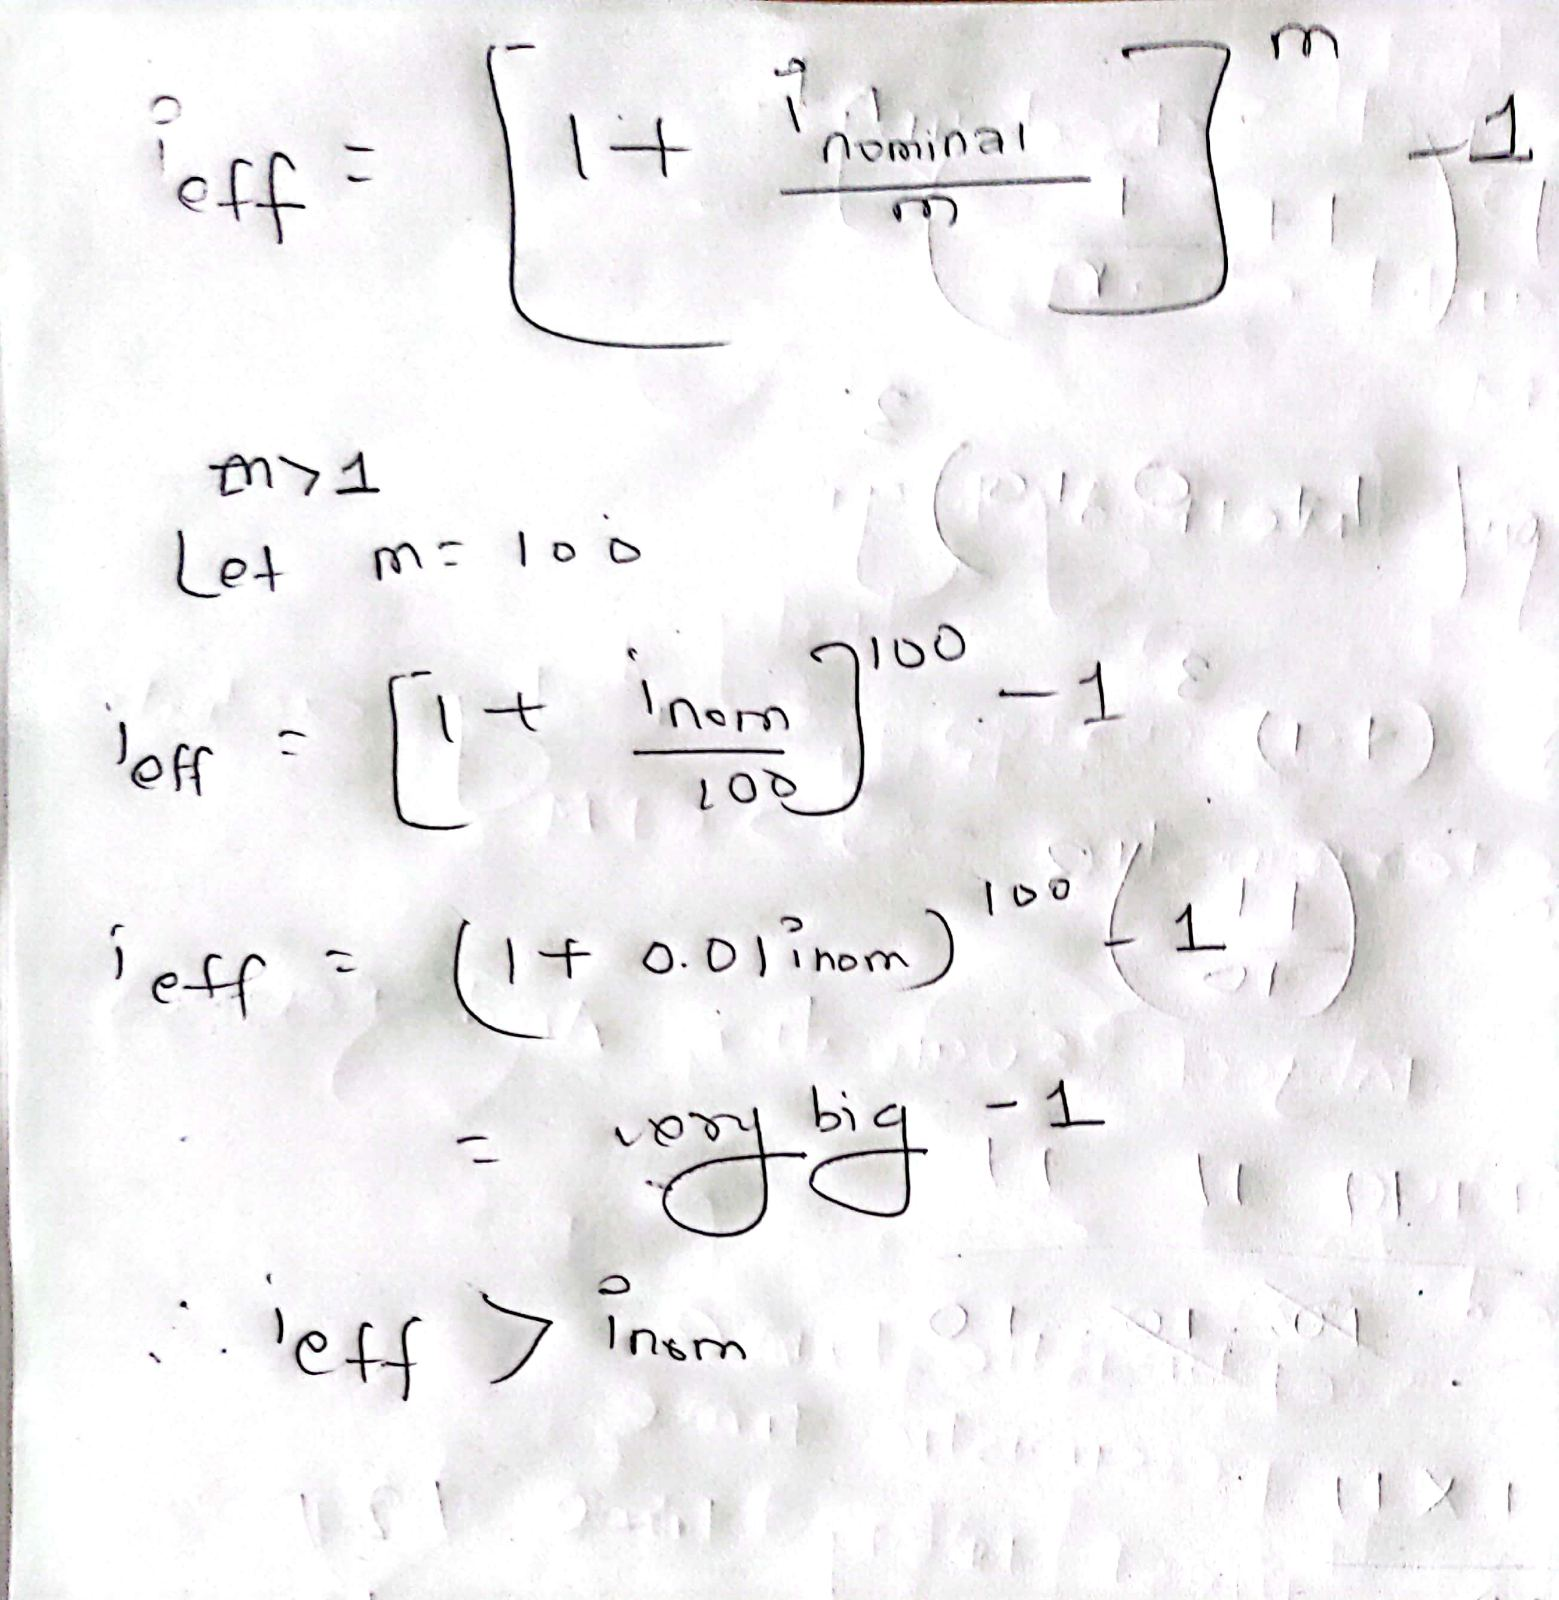 i_eff = [1 + i_nominal / m]^m - 1
m > 1
Let m = 100
i_eff = [1 + i_nom / 100]^100 - 1
i_eff = (1 + 0.01 i_nom)^100 - 1
= very big - 1
∴ i_eff > i_nom